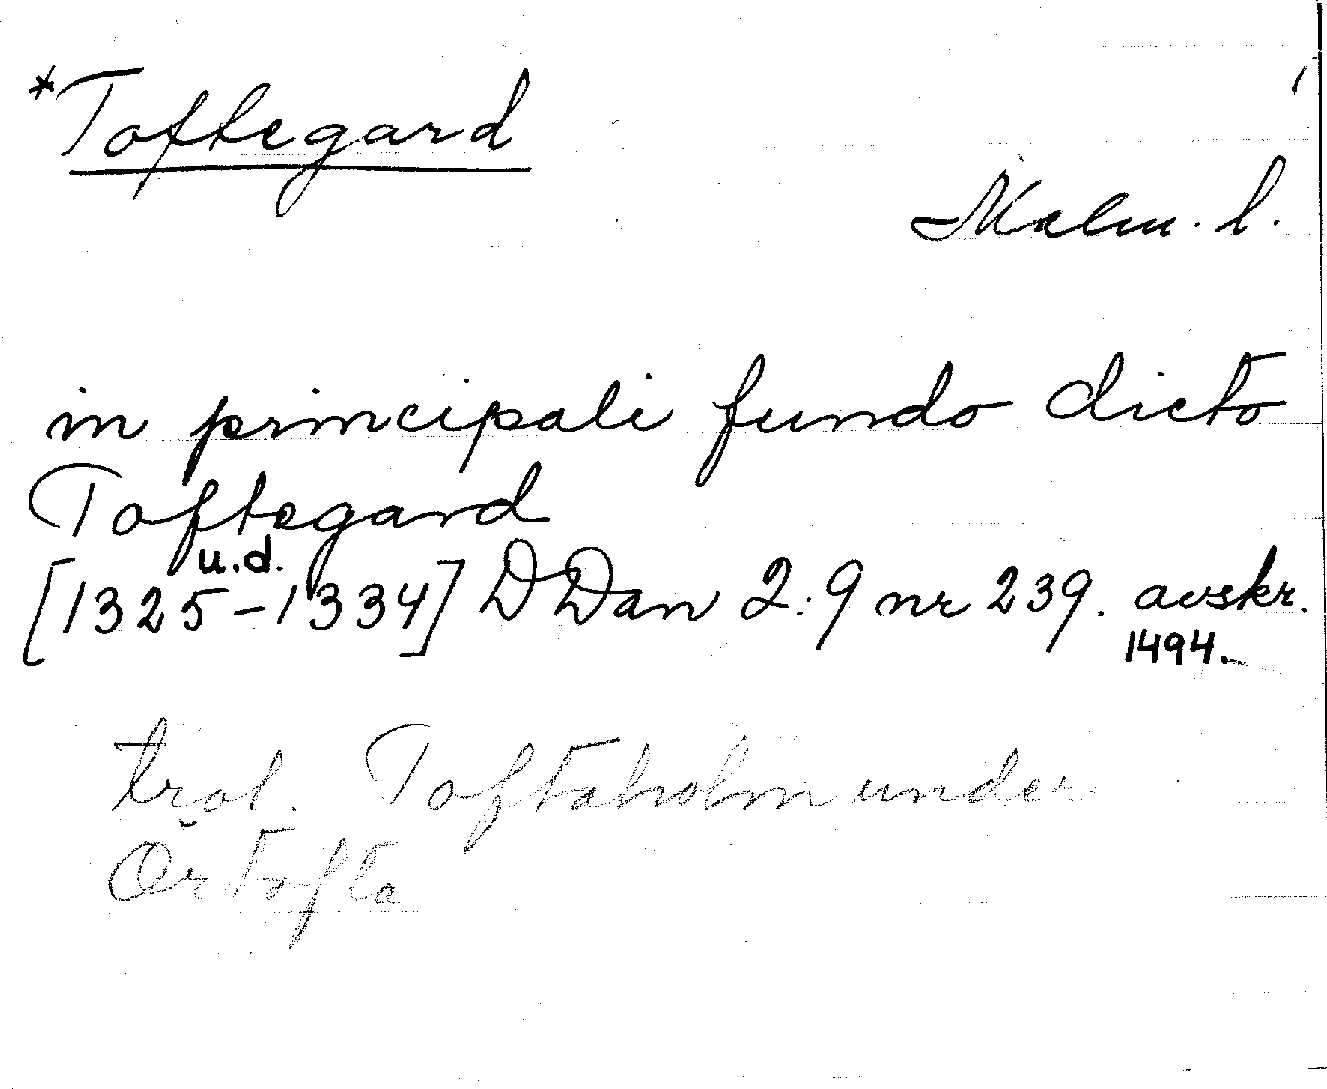 *Toftegard
Malm. l.
in principali fundo dicto
Toftegard
u.d.
[1325-1334] DDan 2:9 nr 239. avskr.
1494.
trol. Toftaholm under
Örtofta